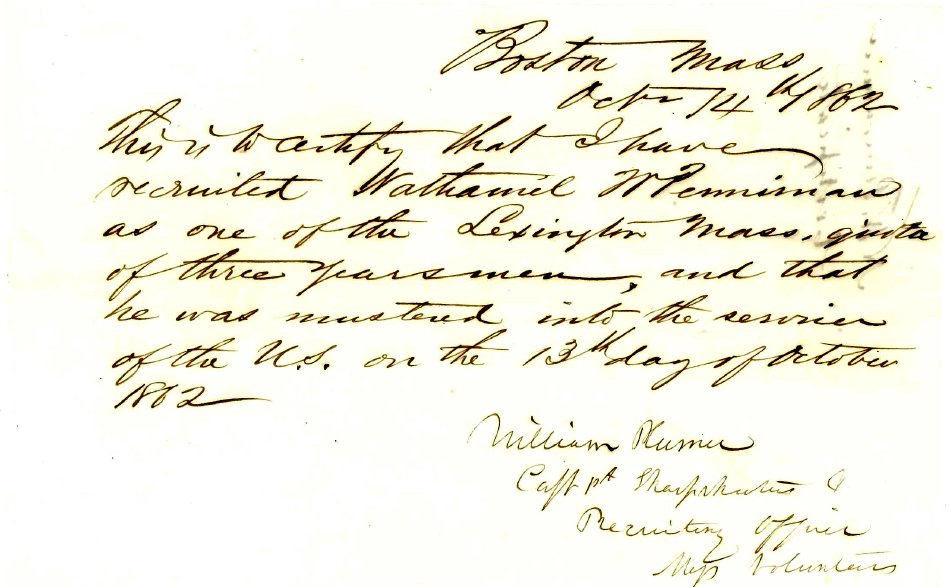 Boston Mass
Octr 14th 1862
This is to certify that I have
recruited Nathaniel W Penniman
as one of the Lexington Mass. quota
of three years men, and that
he was mustered into the service
of the U.S. on the 13th day of October
1862
William Plumer
Capt 1st Sharpshooters &
Recruiting Officer
Mass Volunteers